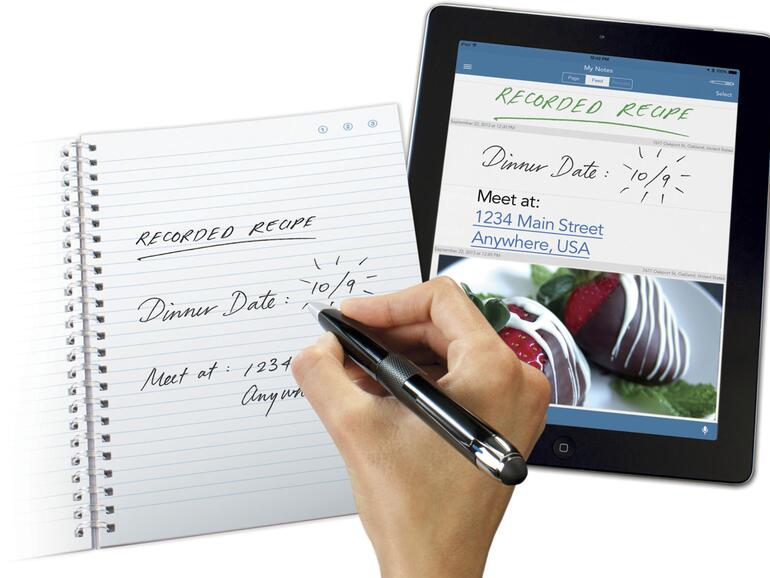 1 2 3
RECORDED RECIPE
Dinner Date: 10/9
Meet at: 1234
Anyw
iPad
12:42 PM
100%
My Notes
Page Feed
Select
RECORDED RECIPE
September 22, 2013 at 12:30 PM
7677 Oakport St, Oakland, United States
Dinner Date: 10/9
Meet at:
1234 Main Street
Anywhere, USA
September 22, 2013 at 12:45 PM
7677 Oakport St, Oakland, United States